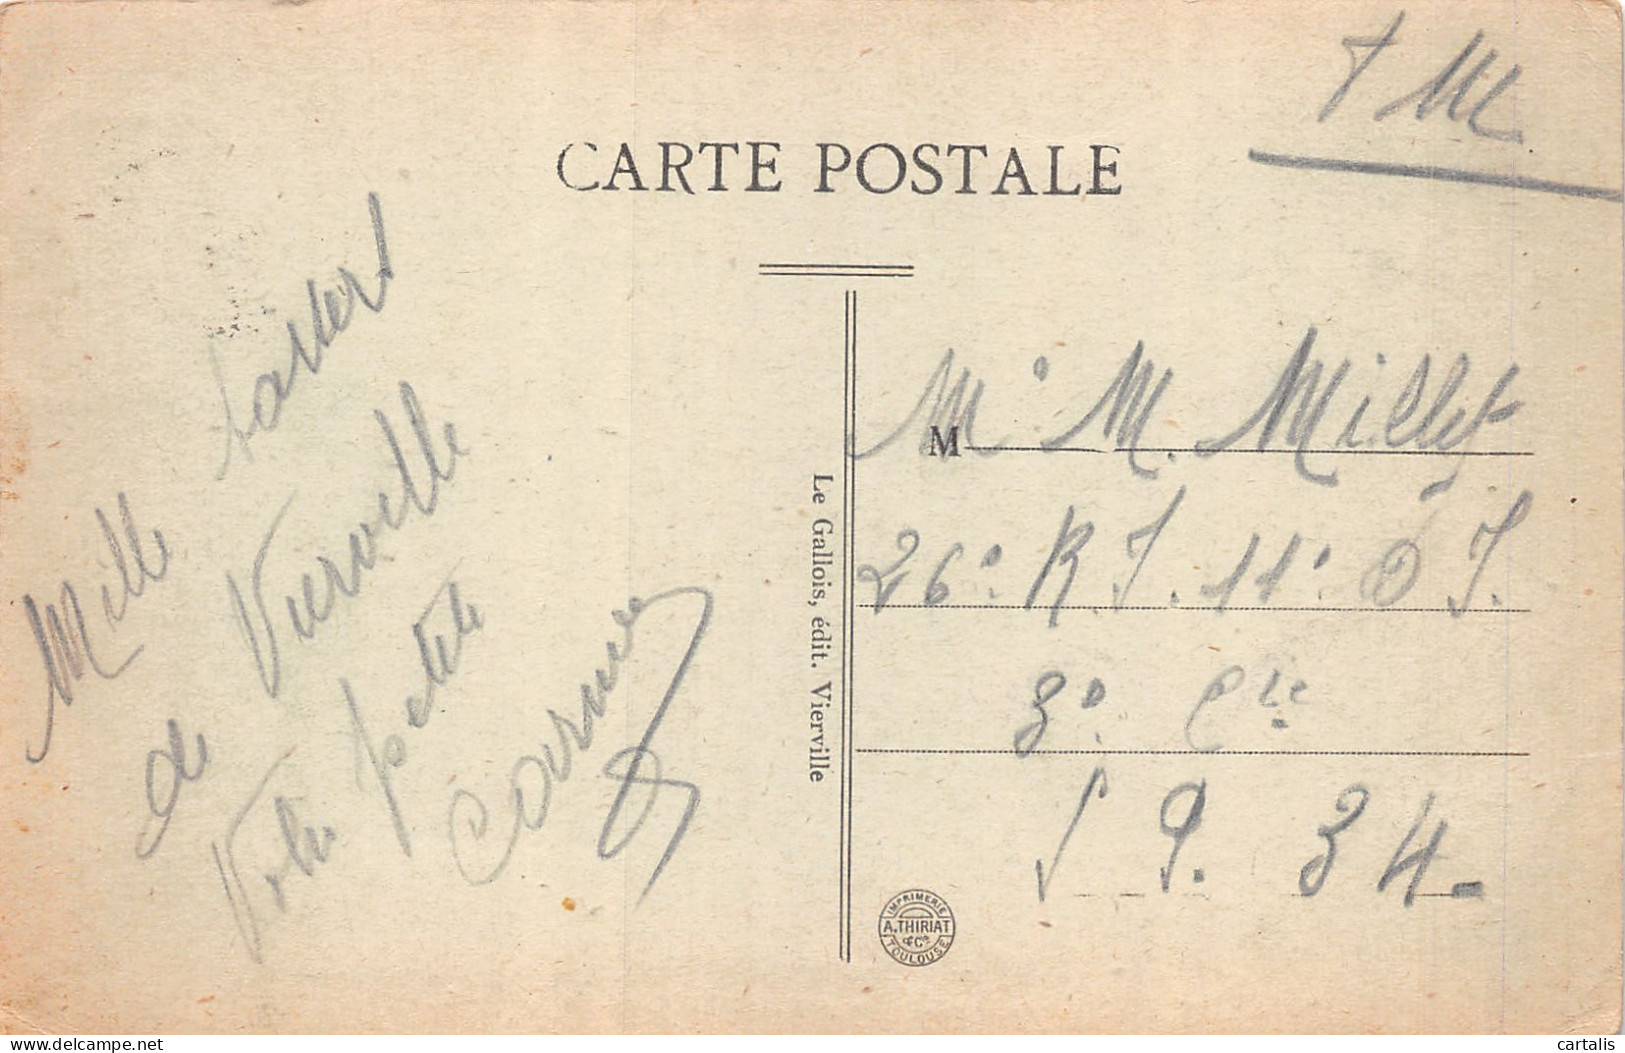 F M
CARTE POSTALE
Mille baisers
de Vierville
Votre petite
Le Gallois, édit. Vierville
M
Mr M. Millet
26e. R. I. 11e. D I.
3e. Cie
S P. 34.
IMPRIMERIE
A. THIRIAT
& Cie
TOULOUSE
delcampe.net
cartalis